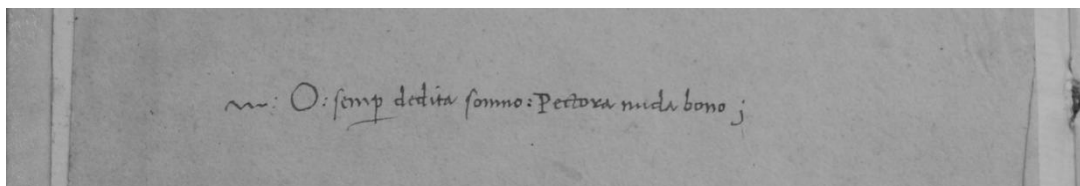 O: semp dedita somno: Pectora nuda bono;